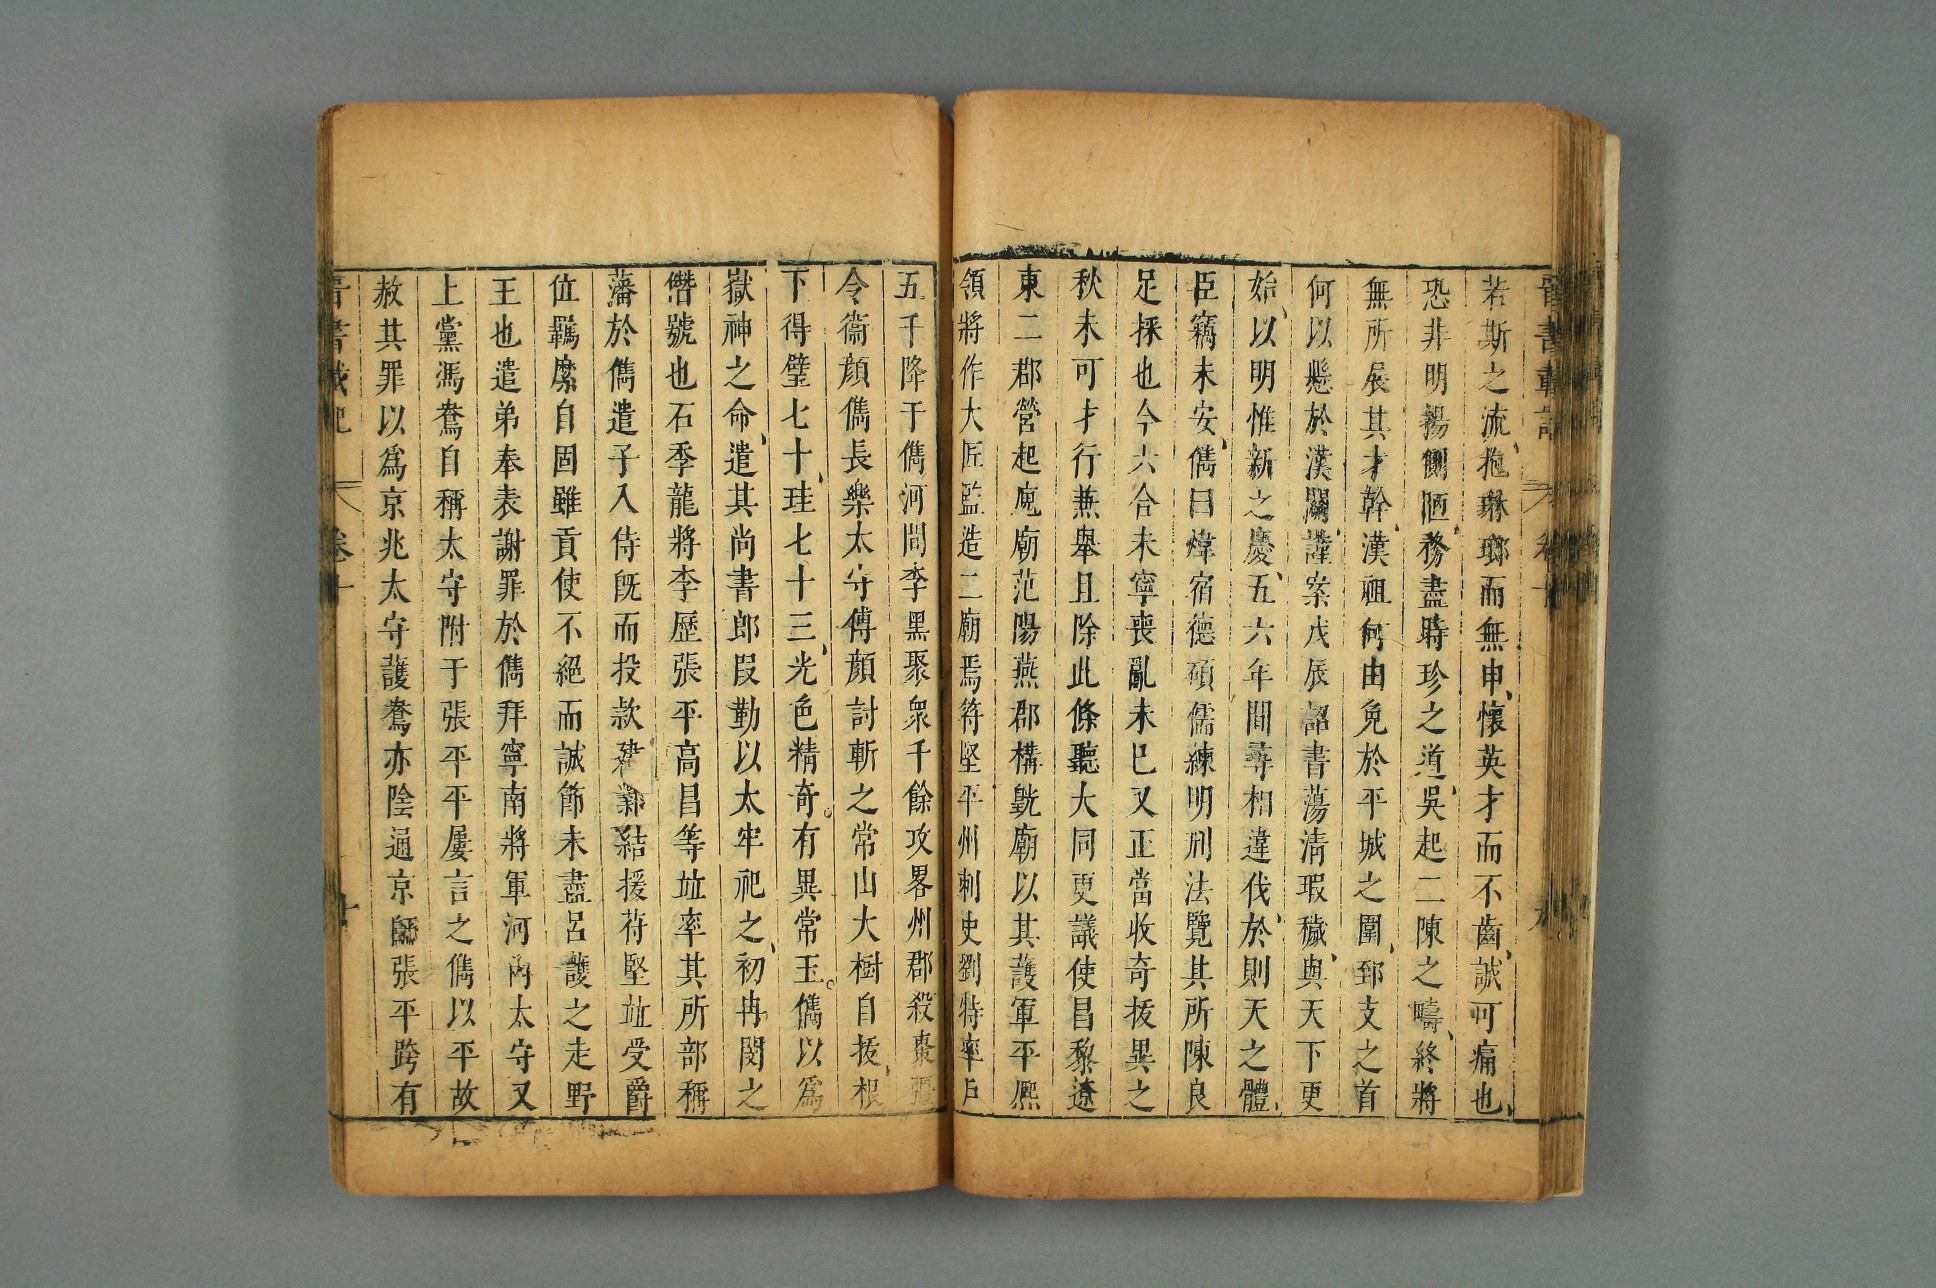 晉書載記 卷十 九
若斯之流抱琳瑯而無申懷英才而不齒誠可痛也
恐非明揚側陋務盡時珍之道吳起二陳之疇終將
無所展其才幹漢祖何由免於平城之圍郅支之首
何以懸於漢關謹案戊辰詔書蕩清瑕穢與天下更
始以明惟新之慶五六年間尋相違伐於則天之體
臣竊未安儁曰煒宿德碩儒練明刑法覽其所陳良
足採也今六合未寧喪亂未已又正當收奇拔異之
秋未可才行兼舉且除此條聽大同更議使昌黎遼
東二郡營起廆廟范陽燕郡構皝廟以其護軍平熙
領將作大匠監造二廟焉苻堅平州刺史劉特率戶
五千降于儁河間李黑聚衆千餘攻畧州郡殺棗彊
令衞顔儁長樂太守傅顔討斬之常山大樹自拔根
下得璧七十珪七十三光色精奇有異常玉儁以爲
嶽神之命遣其尚書郎段勤以太牢祀之初冉閔之
僭號也石季龍將李歷張平高昌等竝率其所部稱
藩於儁遣子入侍旣而投款建鄴結援苻堅竝受爵
位羈縻自固雖貢使不絕而誠節未盡呂護之走野
王也遣弟奉表謝罪於儁拜寧南將軍河內太守又
上黨馮鴦自稱太守附于張平平屢言之儁以平故
赦其罪以爲京兆太守護鴦亦陰通京師張平跨有
晉書載記 卷十 十